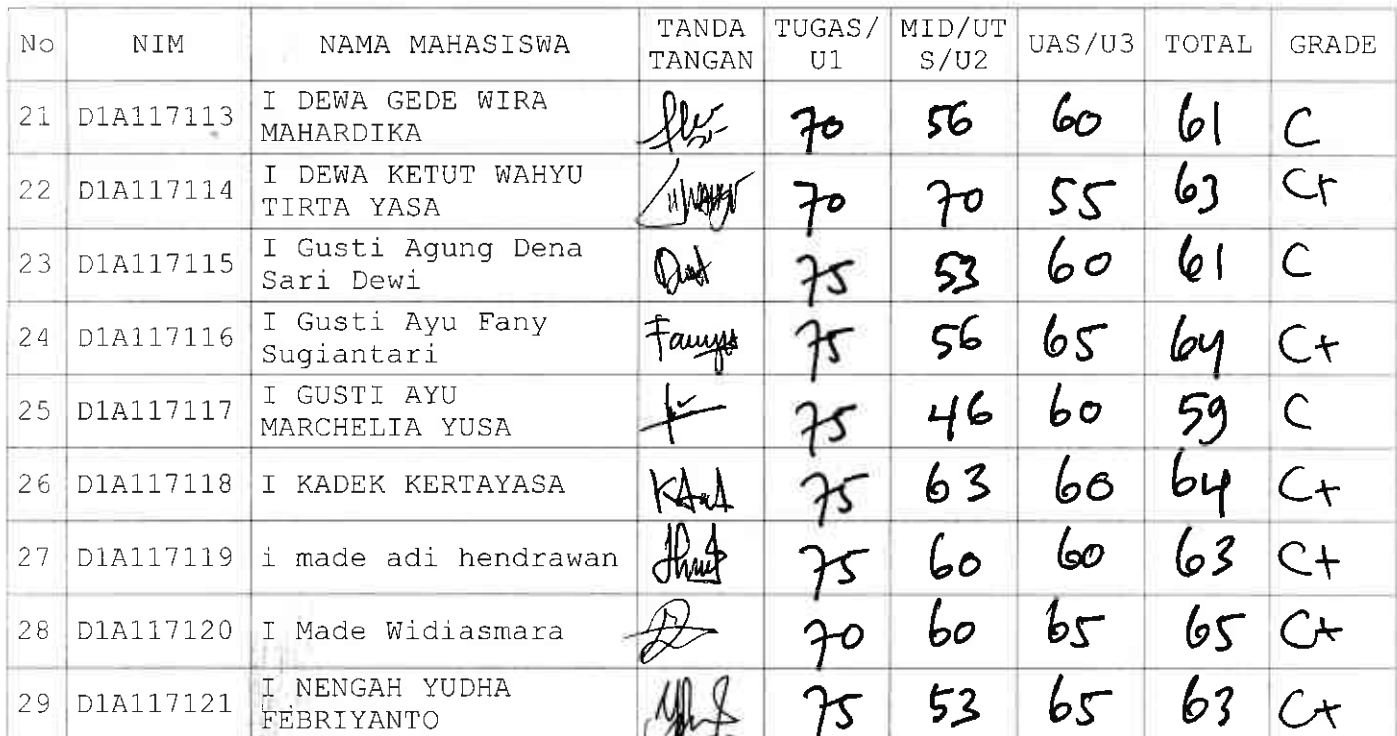 No NIM NAMA MAHASISWA TANDA TANGAN TUGAS/U1 MID/UTS/U2 UAS/U3 TOTAL GRADE
21 D1A117113 I DEWA GEDE WIRA MAHARDIKA 70 56 60 61 C
22 D1A117114 I DEWA KETUT WAHYU TIRTA YASA 70 70 55 63 C+
23 D1A117115 I Gusti Agung Dena Sari Dewi 75 53 60 61 C
24 D1A117116 I Gusti Ayu Fany Sugiantari 75 56 65 64 C+
25 D1A117117 I GUSTI AYU MARCHELIA YUSA 75 46 60 59 C
26 D1A117118 I KADEK KERTAYASA 75 63 60 64 C+
27 D1A117119 i made adi hendrawan 75 60 60 63 C+
28 D1A117120 I Made Widiasmara 70 60 65 65 C+
29 D1A117121 I NENGAH YUDHA FEBRIYANTO 75 53 65 63 C+